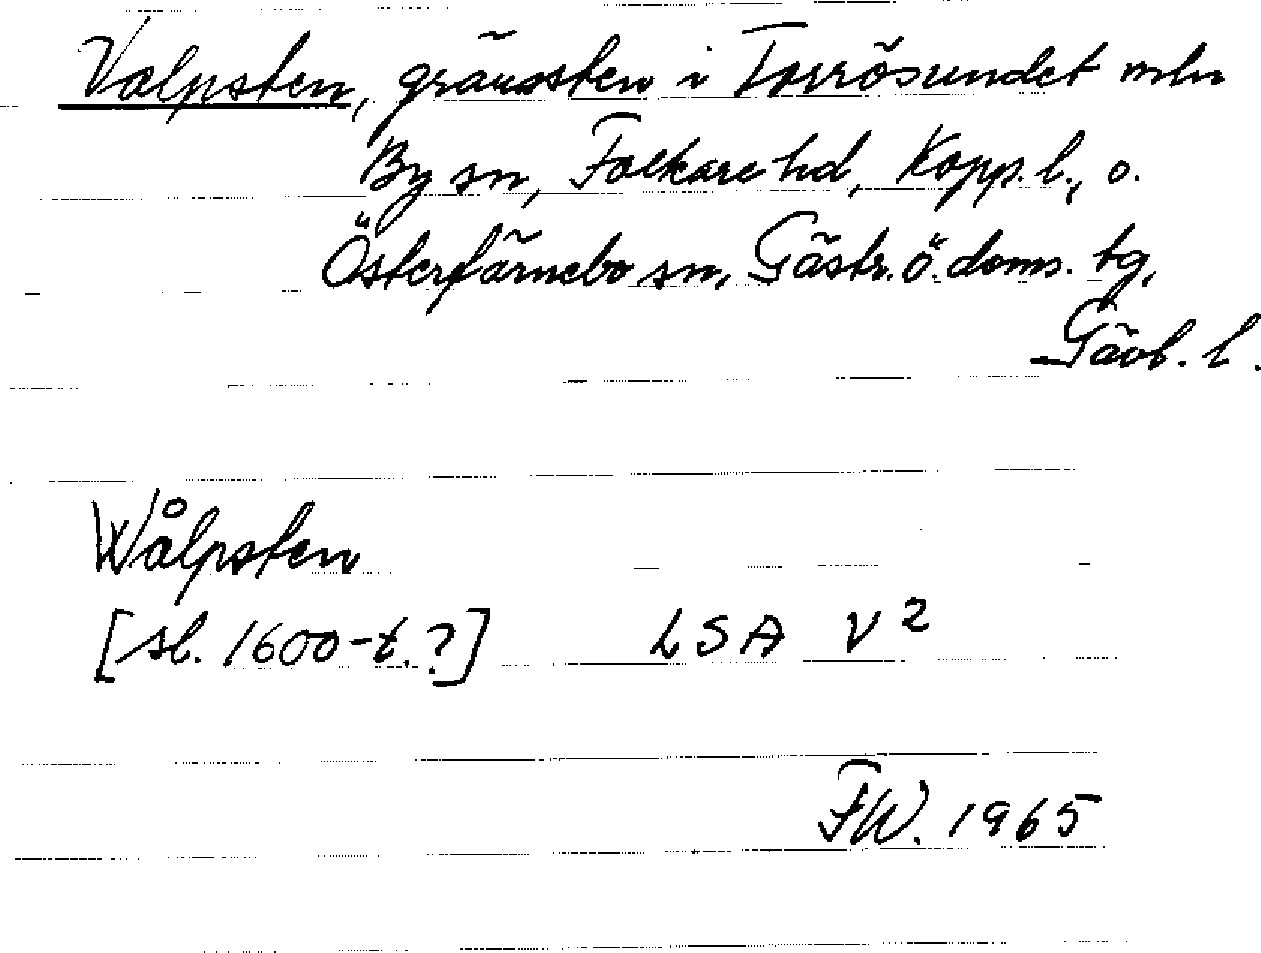 Valpsten, gränssten i Torrösundet mln
By sn, Folkare hd, Kopp. l., o.
Österfärnebo sn, Gästr. ö. doms. tg,
Gävl. l.
Wålpsten
[sl. 1600-t.?] LSA V2
FW. 1965